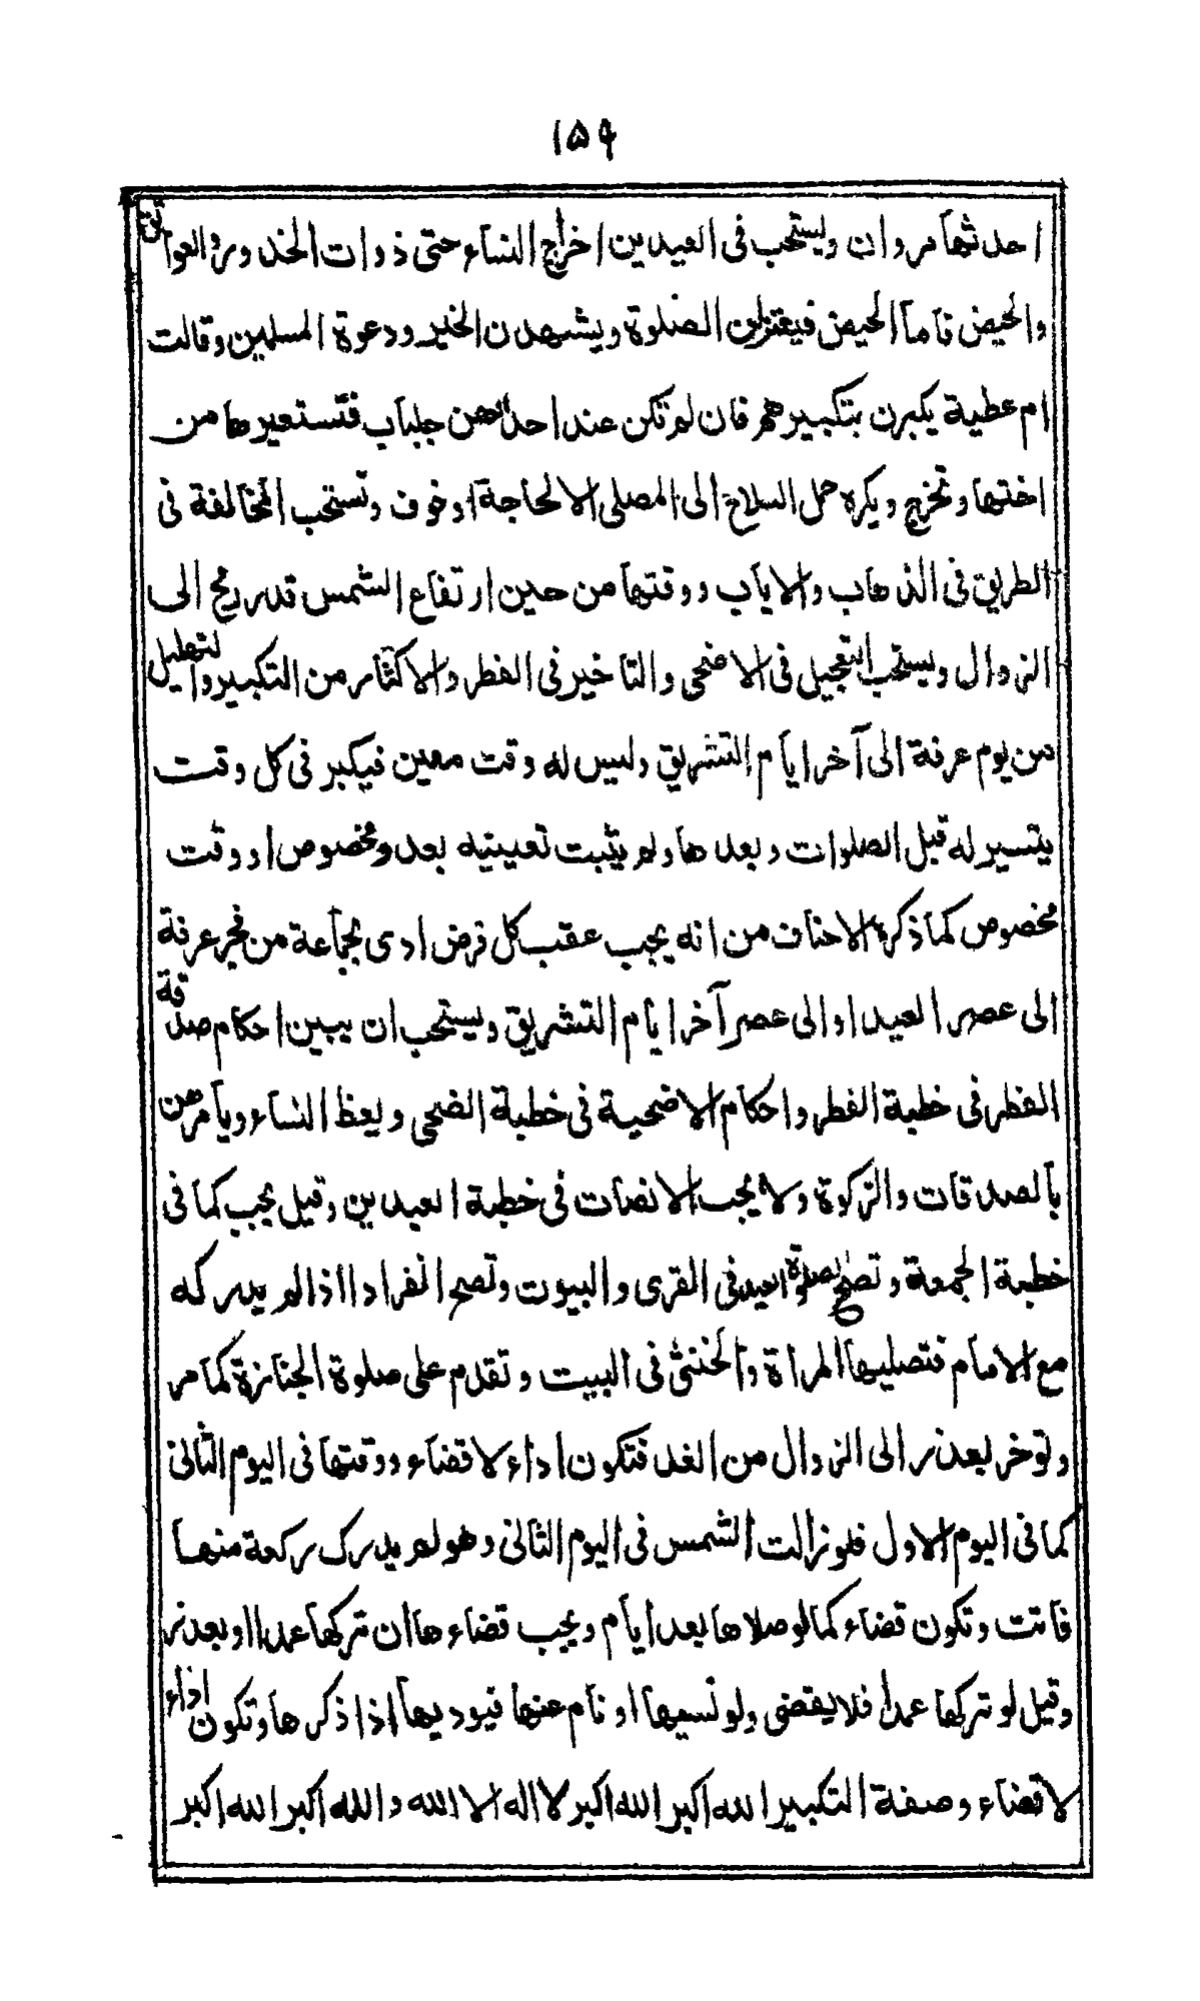 ١٥٩
احدثها مروان ويستحب فى العيدين اخراج النساء حتى ذوات الخدور والعواتق
والحيض فاما الحيض فيعتزلن الصلوة ويشهدن الخير ودعوة المسلمين وقالت
ام عطية يكبرن بتكبيرهم فان لم تكن عند احداهن جلباب فتستعيرها من
اختها وتخرج ويكره حمل السلاح الى المصلى الا لحاجة او خوف وتستحب المخالفة فى
الطريق فى الذهاب والاياب ووقتها من حين ارتفاع الشمس قدر رمح الى
الزوال ويستحب التعجيل فى الاضحى والتاخير فى الفطر والاكثار من التكبير والتهليل
من يوم عرفة الى آخر ايام التشريق وليس له وقت معين فيكبر فى كل وقت
يتسير له قبل الصلوات وبعدها ولم يثبت تعينيه بعدد مخصوص او وقت
مخصوص كما ذكره الاحناف من انه يجب عقب كل فرض ادى بجماعة من فجر عرفة
الى عصر العيد او الى عصر آخر ايام التشريق ويستحب ان يبين احكام صدقة
الفطر فى خطبة الفطر واحكام الاضحية فى خطبة الضحى ويعظ النساء ويأمرهن
بالصدقات والزكوة ولا يجب الانصات فى خطبة العيدين وقيل يجب كما فى
خطبة الجمعة وتصح صلوة العيد فى القرى والبيوت وتصح انفرادا اذا لم يدركه
مع الامام فتصليها المرأة والخنثى فى البيت وتقدم على صلوة الجنازة كما مر
وتوخر لعذر الى الزوال من الغد فتكون اداء لا قضاء ووقتها فى اليوم الثانى
كما فى اليوم الاول فلو زالت الشمس فى اليوم الثانى وهو لم يدرك ركعة منها
فاتت وتكون قضاء كما لو صلاها بعد ايام ويجب قضاءها ان تركها عمدا او بعذر
وقيل لو تركها عمدا فلا يقضى ولو نسيها او نام عنها فيوديها اذا ذكرها وتكون اداء
لا قضاء وصفة التكبير الله اكبر الله اكبر لا اله الا الله والله اكبر الله اكبر